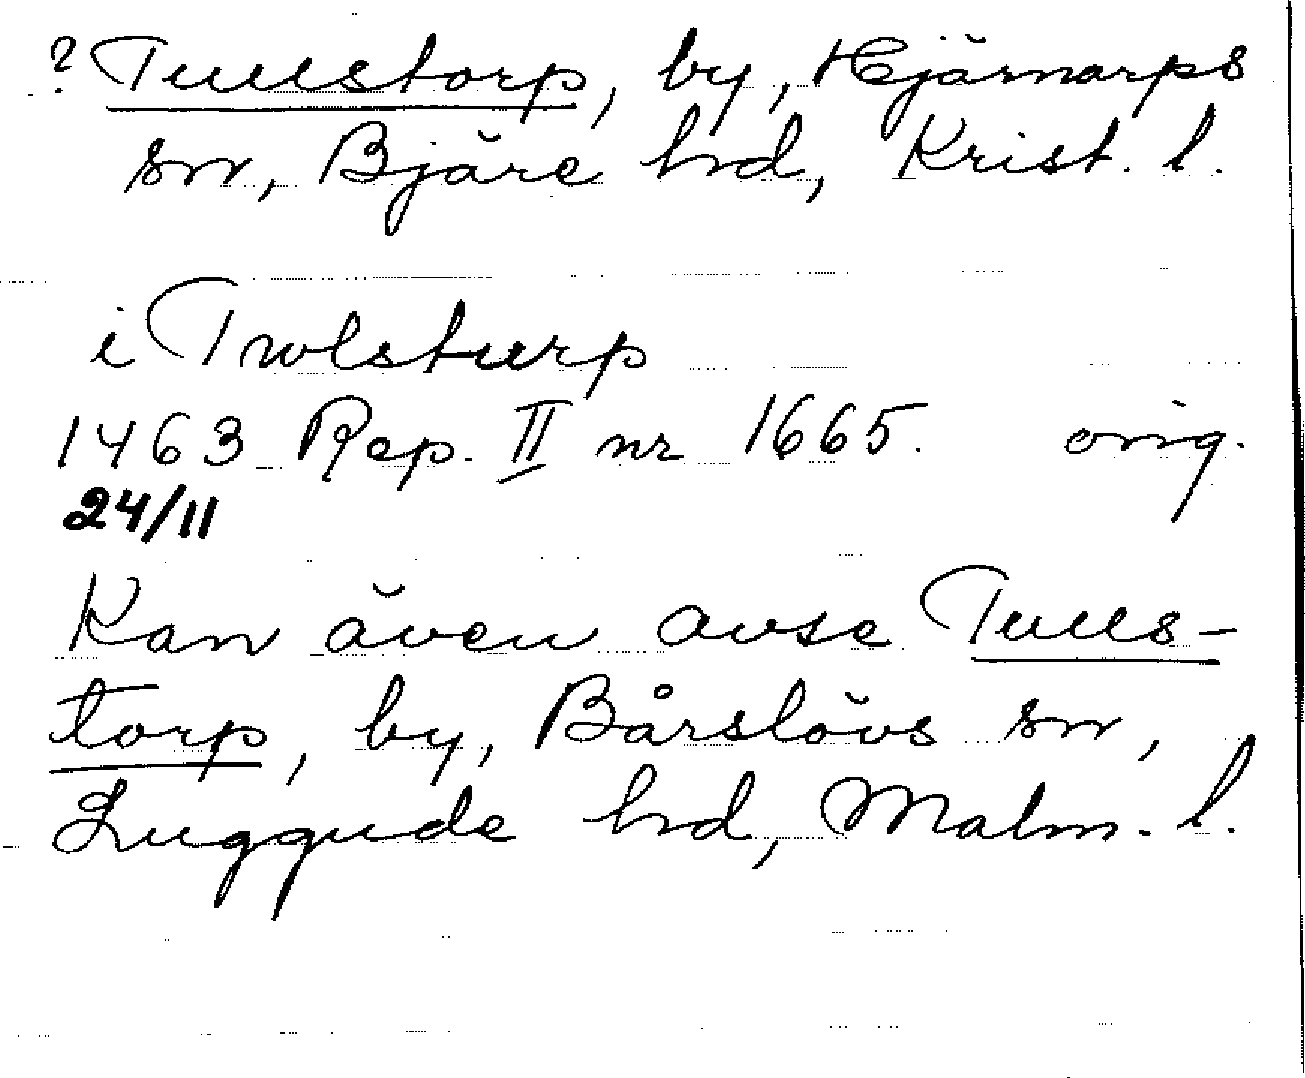 ? Tullstorp, by, Hjärnarps
sn, Bjäre hd, Krist. l.
i Twlsturp
1463 Rep. II nr 1665. orig.
24/11
Kan även avse Tulls-
torp, by, Bårslövs sn,
Luggude hd, Malm. l.